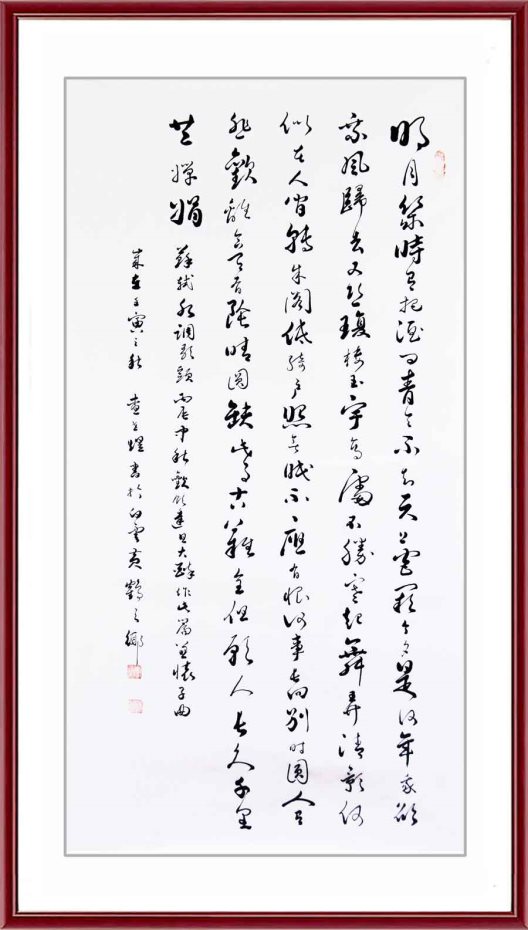 明月几時有把酒问青天不知天上宫闕今夕是何年我欲
乘风歸去又恐瓊楼玉宇高處不勝寒起舞弄清影何
似在人间轉朱阁低绮户照無眠不應有恨何事长向别时圆人有
悲歡離合月有陰晴圆缺此事古難全但願人长久千里
共嬋娟
蘇轼水调歌頭丙辰中秋歡饮達旦大醉作此篇兼懷子由
歲在壬寅之秋 書於白雲黄鶴之鄉